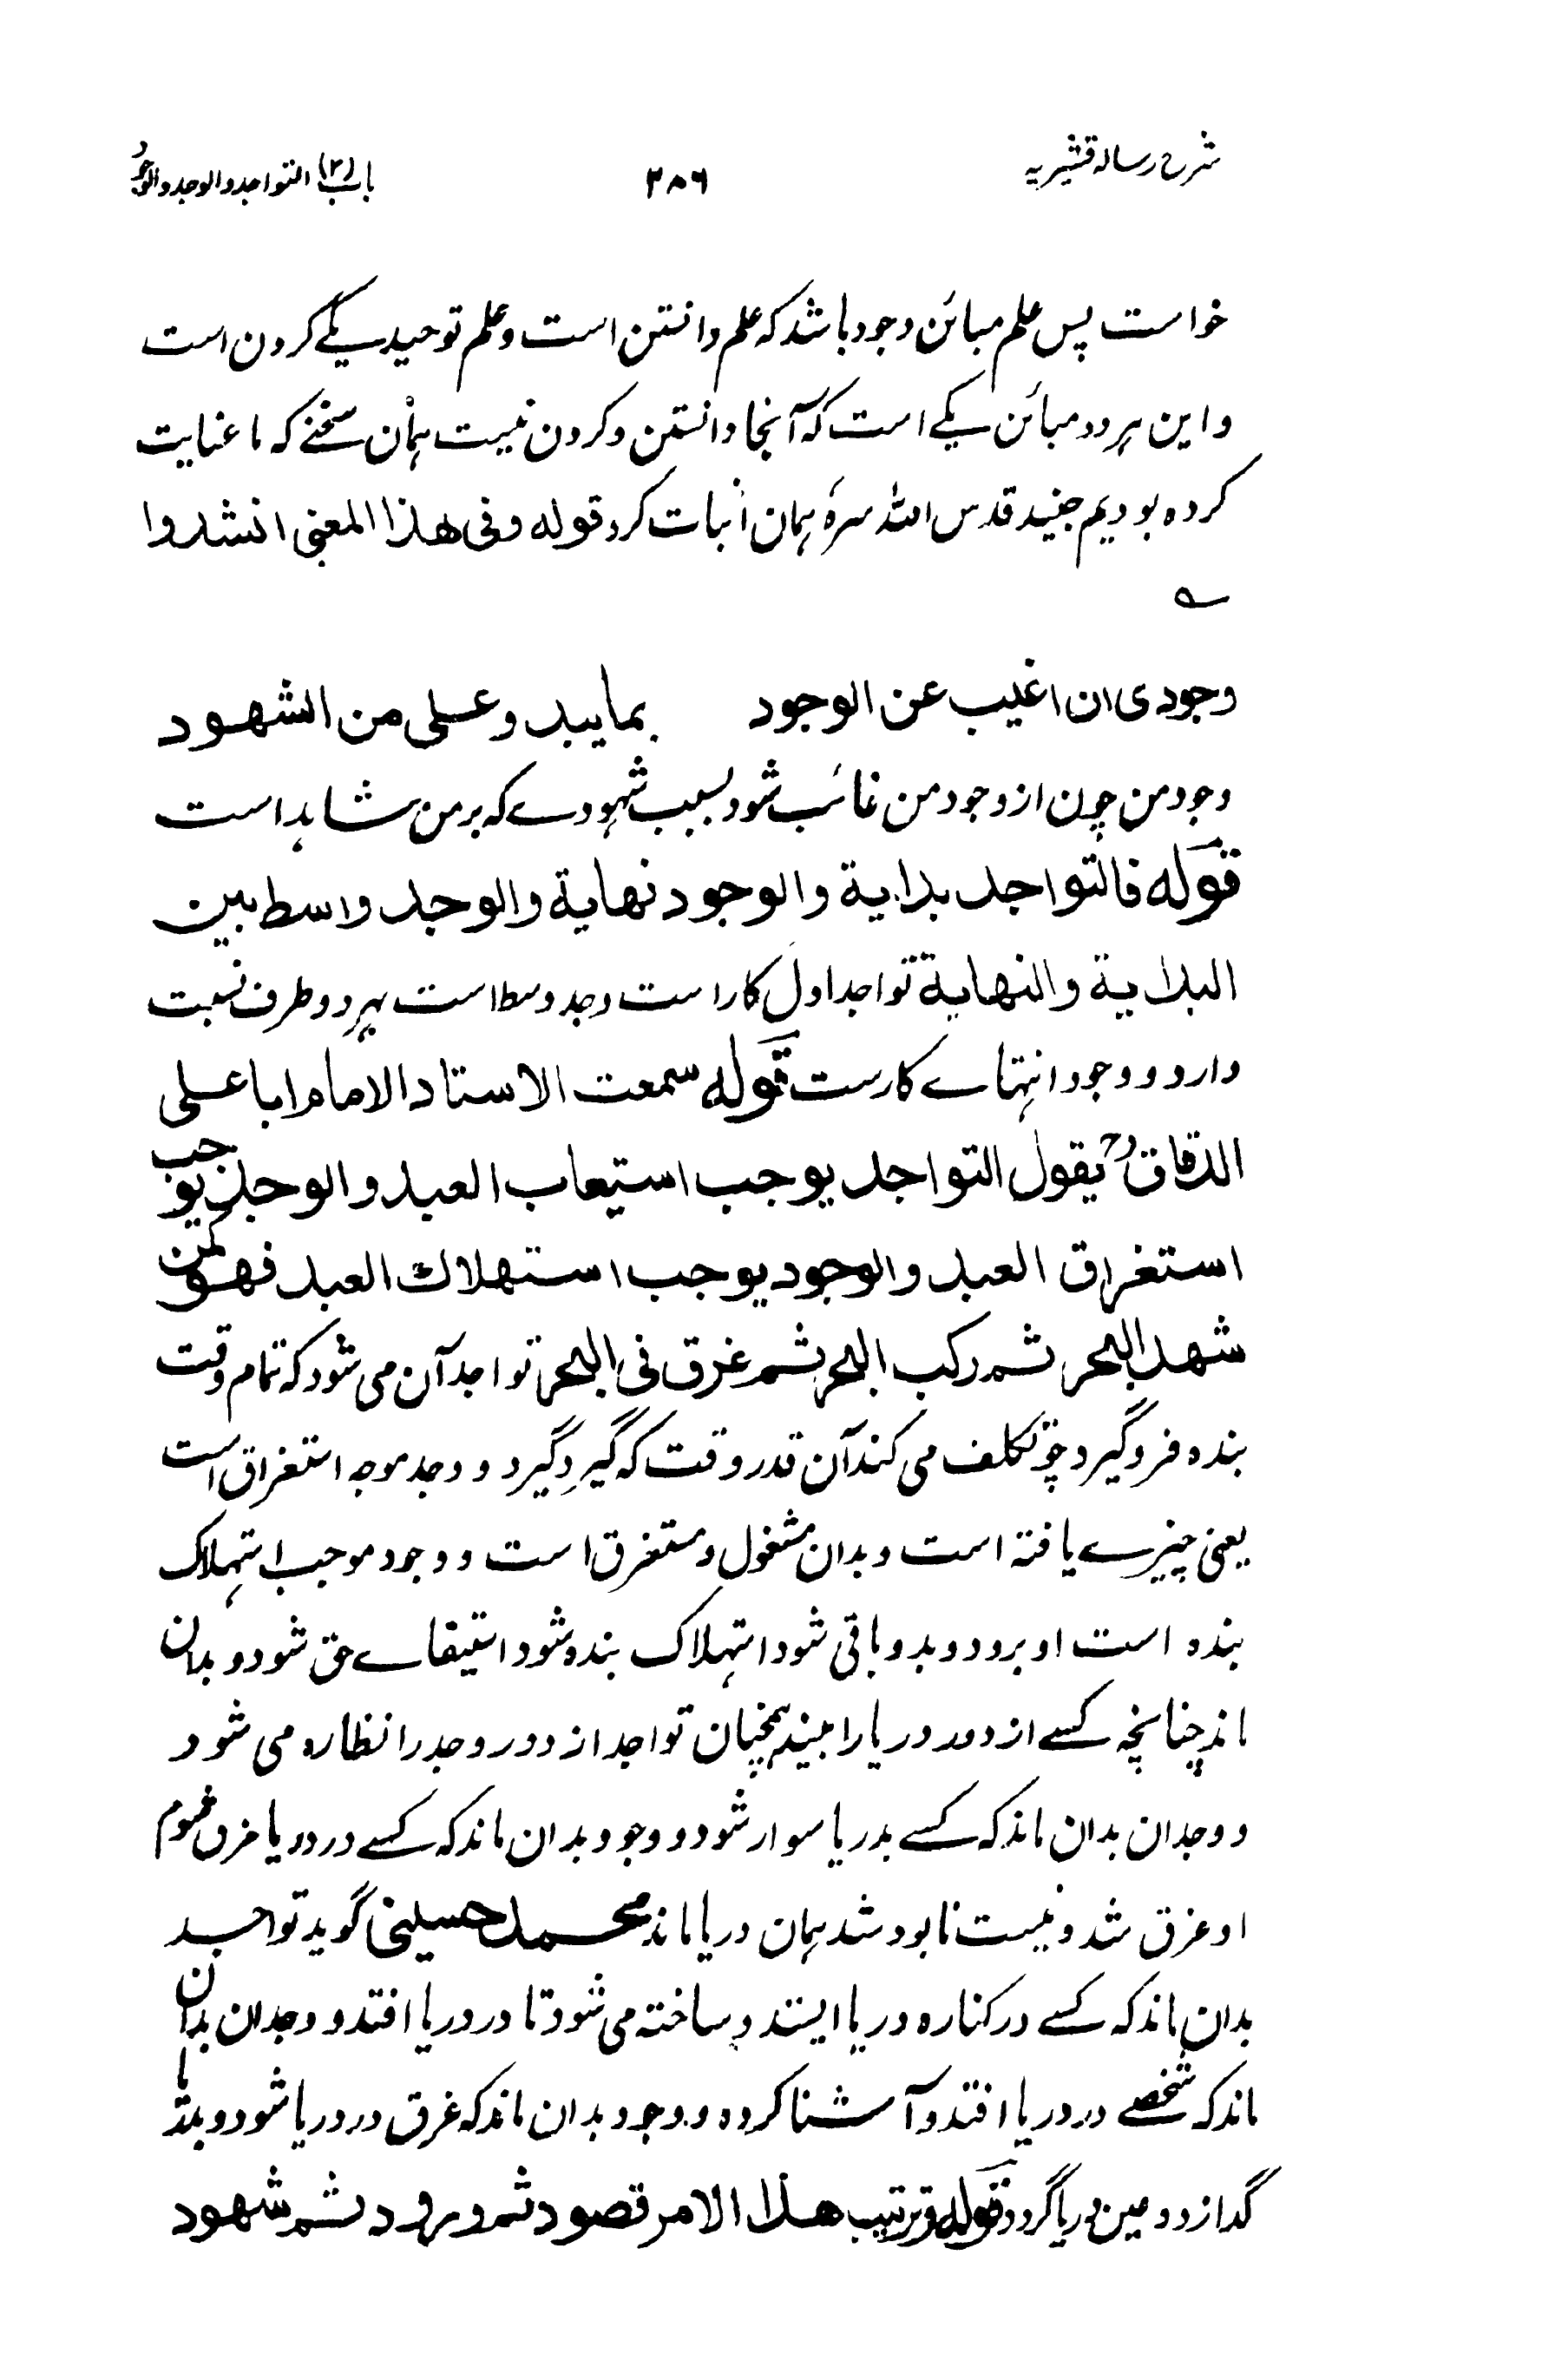 شرح رسالہ قشیریہ
۲۸۶
باب (۲) التواجد والوجد والوجود
خواست پس علم مبائن وجود باشد کہ علم دانستن است و علم توحید یکے کردن است
و این ہر دو مبائن یکے است کہ آنجا دانستن و کردن نیست ہمان سخنے کہ ما عنایت
کردہ بودیم جنید قدس اللہ سرہٗ ہمان اثبات کرد قولہ وفی ھذا المعنی انشدوا
؎
وجودی ان اغیب عن الوجود بما یبد وعلی من الشھود
وجود من چون از وجود من غائب شود بسبب شہودے کہ بر من شاہد است
قولہ فالتواجد بدایۃ والوجود نھایۃ والوجد واسط بین
البدایۃ والنھایۃ تواجد اول کار است وجد وسط است بہر دو طرف نسبت
دارد و وجود انتہاے کارست قولہ سمعت الاستاد الامام ابا علی
الدقاق رح یقول التواجد یوجب استیعاب العبد والوجد یوجب
استغراق العبد والوجود یوجب استھلاک العبد فھو کمن
شھد البحر ثم رکب البحر ثم غرق فی البحر تواجد آن می شود کہ تمام وقت
بندہ فرو گیرد چو تکلف می کند آن قدر وقت کہ گیرد گیرد و وجد موجہ استغراق است
یعنی چیزے یافتہ است و بدان مشغول و مستغرق است و وجود موجب استہلاک
بندہ است او برود و بدو باقی شود استہلاک بندہ شود استیفاے حق شود و بدان
ماند چنانچہ کسے از دور دریا را بیند ہمچنان تواجد از دور وجد را نظارہ می شود
و وجدان بدان ماند کہ کسے بدریا سوار شود و وجود بدان ماند کہ کسے در دریا غرق شود ہم
او غرق شد و نیست نابود شد ہمان دریا ماند محمد حسینی گوید تواجد
بدان ماند کہ کسے در کنارہ دریا ایستد و ساختہ می شود تا در دریا افتد و وجدان بدان
ماند کہ شخصے در دریا افتد و آشنا کردہ و وجود بدان ماند کہ غرق در دریا شود و بدریا
گدازد و عین دریا گردد قولہ وترتیب ھذا الامر قصود ثم ورود ثم شھود